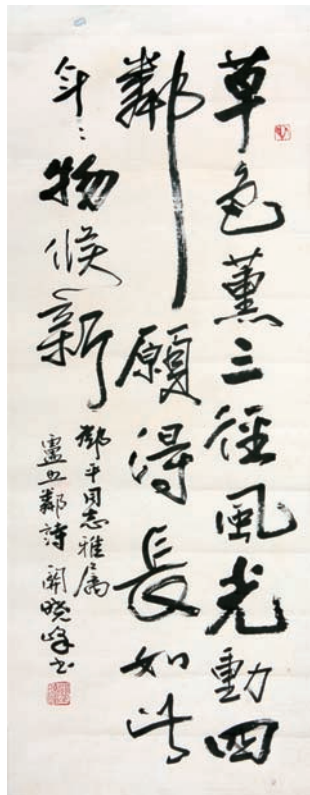 草色薰三徑風光動四
鄰願得長如此
年々物候新
鄧平同志雅属
盧照鄰詩 關曉峰书